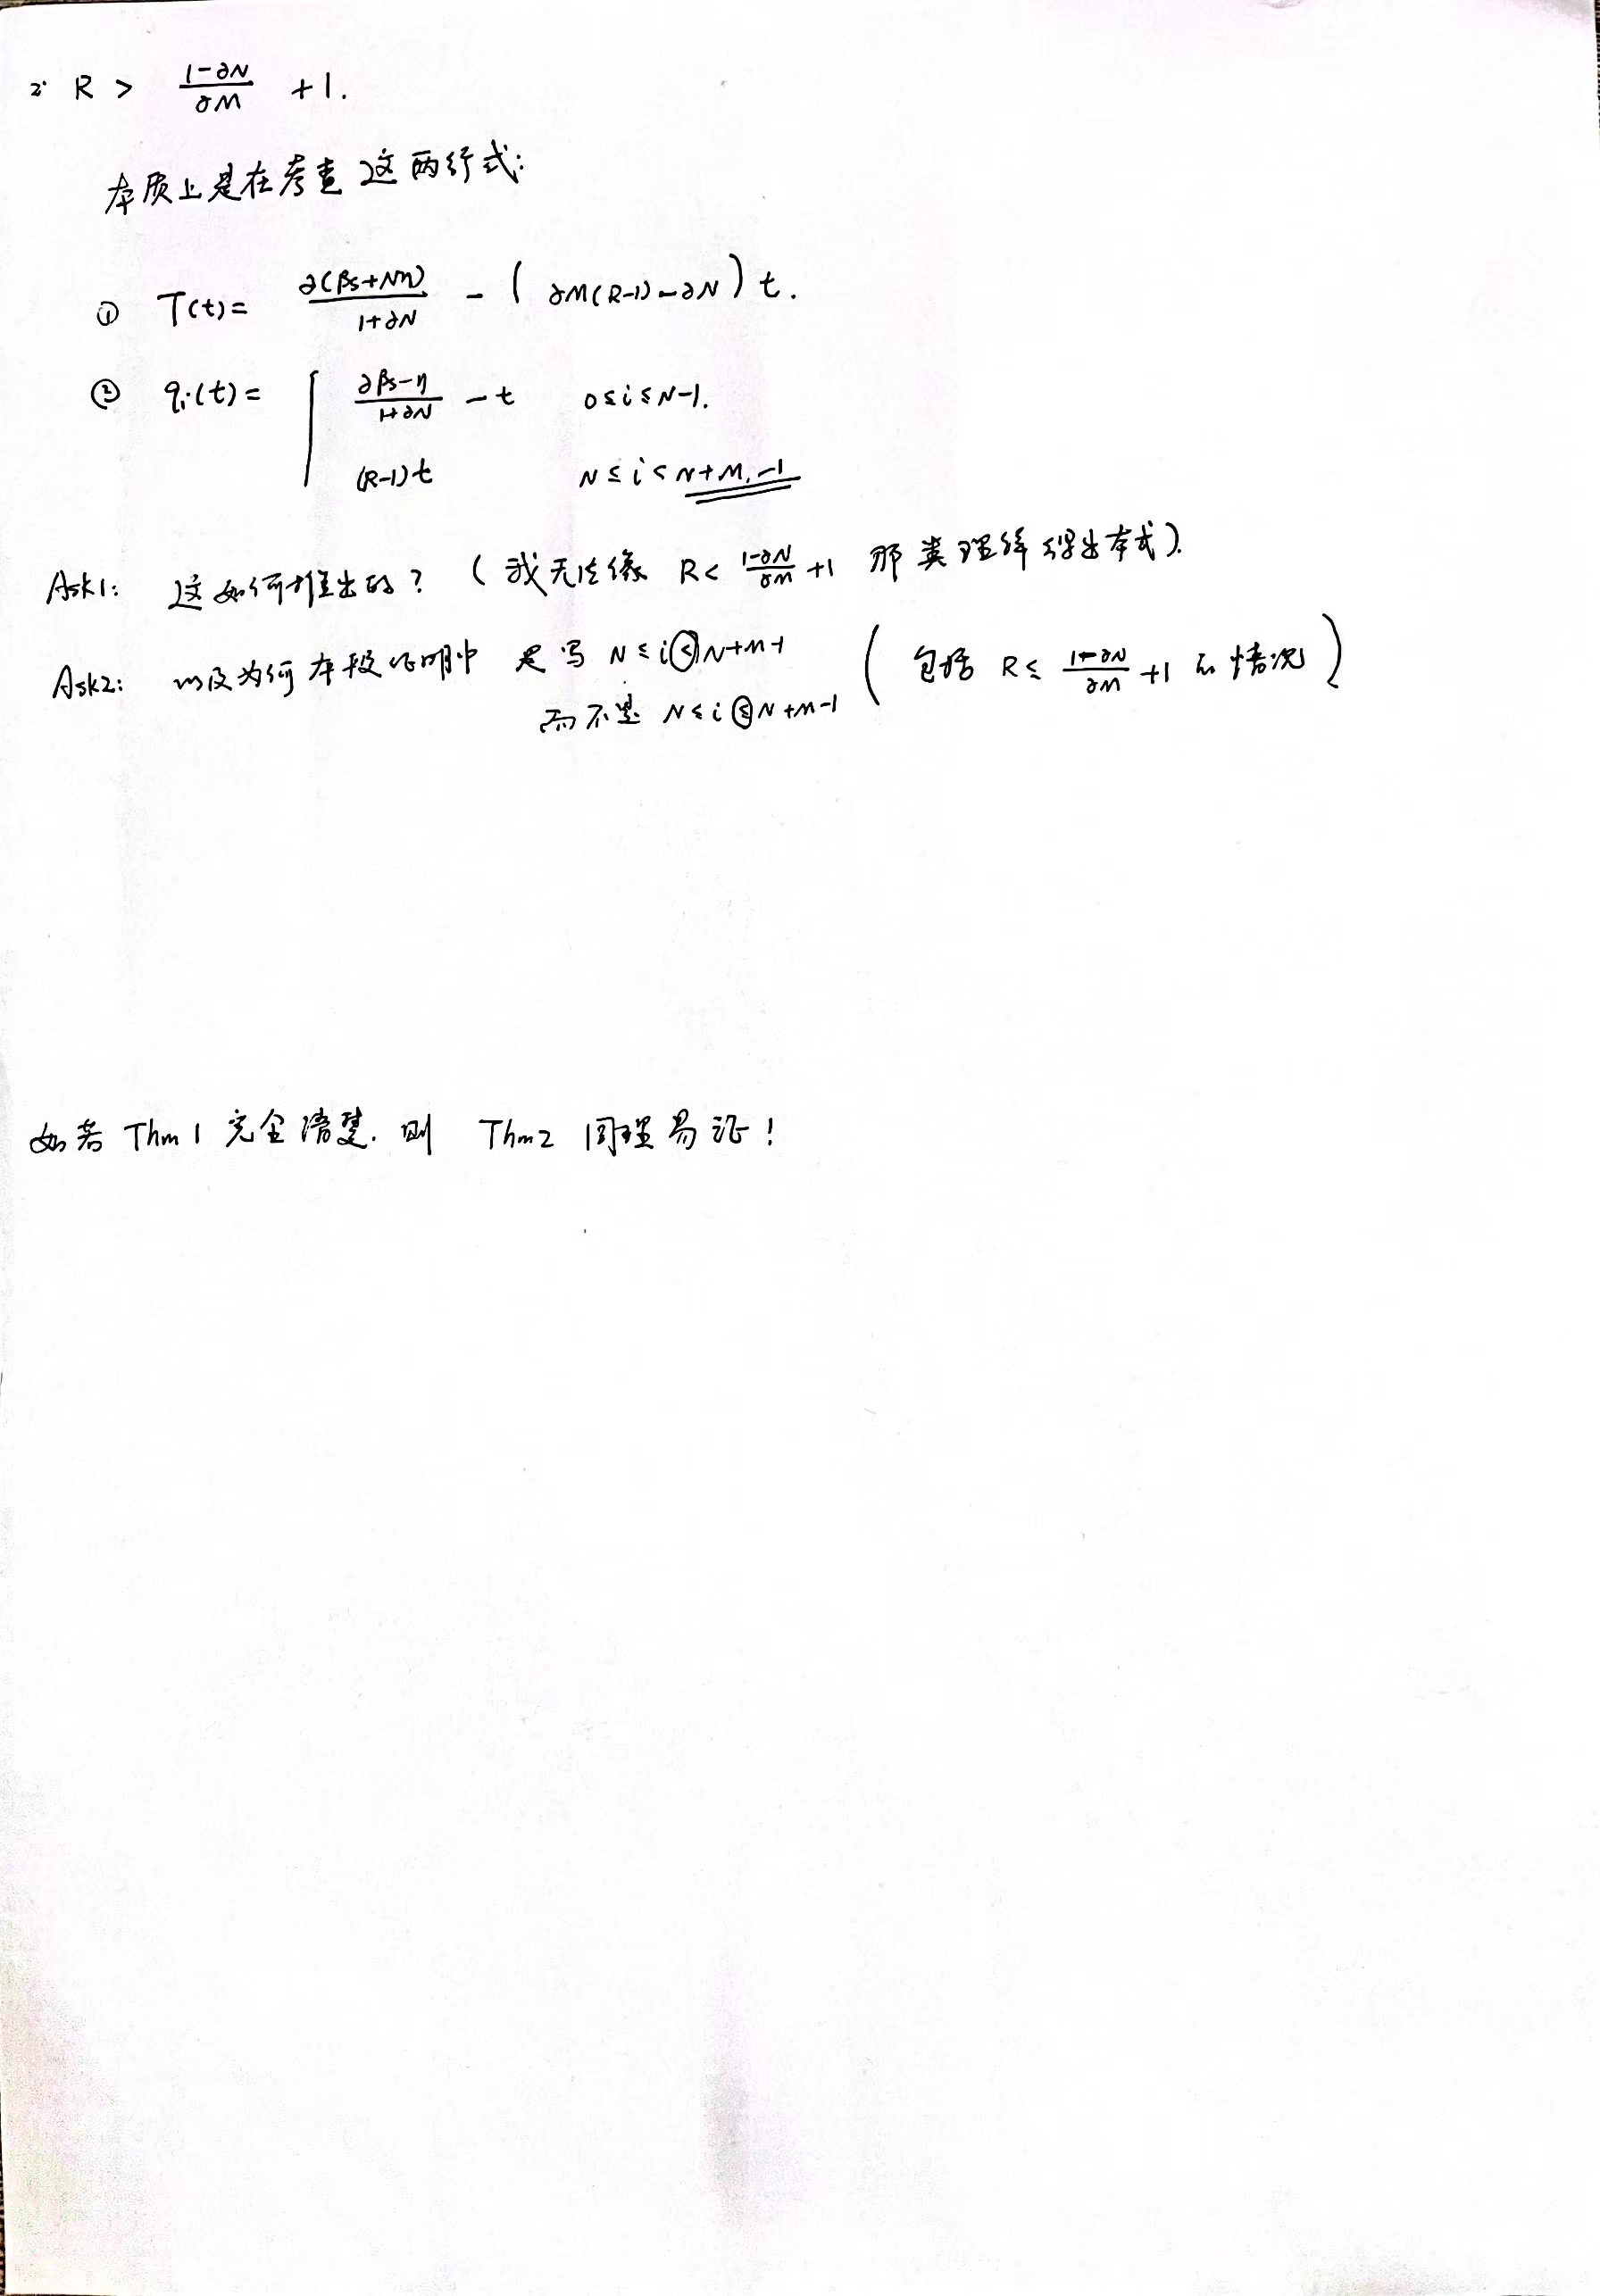 2° R > \frac{1-∂N}{∂M} +1.
本质上是在考查这两行式:
① T(t)= \frac{∂(βs+Nη)}{1+∂N} - ( ∂M(R-1)-∂N ) t.
② qi(t)= { \frac{∂βs-η}{1+∂N} - t 0≤i≤N-1.
(R-1)t N≤i<N+M-1
Ask1: 这如何推出的? (我无法像 R< \frac{1-∂N}{∂M} +1 那类理解得出本式).
Ask2: 以及为何本段证明中 是写 N≤i<N+M-1 (包括 R≤ \frac{1-∂N}{∂M} +1 的情况)
而不是 N≤i≤N+M-1
如若 Thm1 完全清楚. 则 Thm2 同理易证!